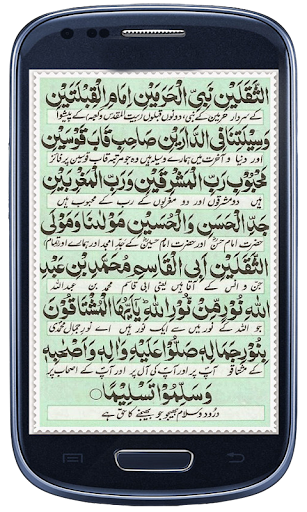 الثَّقَلَيْنِ نَبِيِّ الْحَرَمَيْنِ اِمَامِ الْقِبْلَتَيْنِ
کے سردار حرمین کے نبی، دونوں قبلوں (بیت المقدس و کعبہ) کے پیشوا
وَسِيْلَتِنَا فِي الدَّارَيْنِ صَاحِبِ قَابَ قَوْسَيْنِ
اور دنیا و آخرت میں ہمارے وسیلہ ہیں وہ جو مرتبہ قاب قوسین پر فائز
مَحْبُوْبِ رَبِّ الْمَشْرِقَيْنِ وَرَبِّ الْمَغْرِبَيْنِ
ہیں دو مشرقوں اور دو مغربوں کے رب کے محبوب ہیں
جَدِّ الْحَسَنِ وَالْحُسَيْنِ مَوْلٰنَا وَمَوْلَى
حضرت امام حسنؓ اور حضرت امام حسینؓ کے جد امجد اور ہمارے اور (تمام)
الثَّقَلَيْنِ اَبِي الْقَاسِمِ مُحَمَّدِ بْنِ عَبْدِ
جن و انس کے آقا ہیں یعنی ابی قاسم محمد بن عبداللہ
اللهِ نُوْرٍ مِّنْ نُّوْرِ اللهِ يٰاَيُّهَا الْمُشْتَاقُوْنَ
جو اللہ کے نور میں سے ایک نور ہیں اے نورِ جمالِ محمدی
بِنُوْرِ جَمَالِهٖ صَلُّوْا عَلَيْهِ وَاٰلِهٖ وَاَصْحَابِهٖ
کے مشتاقو آپ پر اور آپ کی آل پر اور آپ کے اصحاب پر
وَسَلِّمُوْا تَسْلِيْمًا
درود و سلام بھیجو جو بھیجنے کا حق ہے